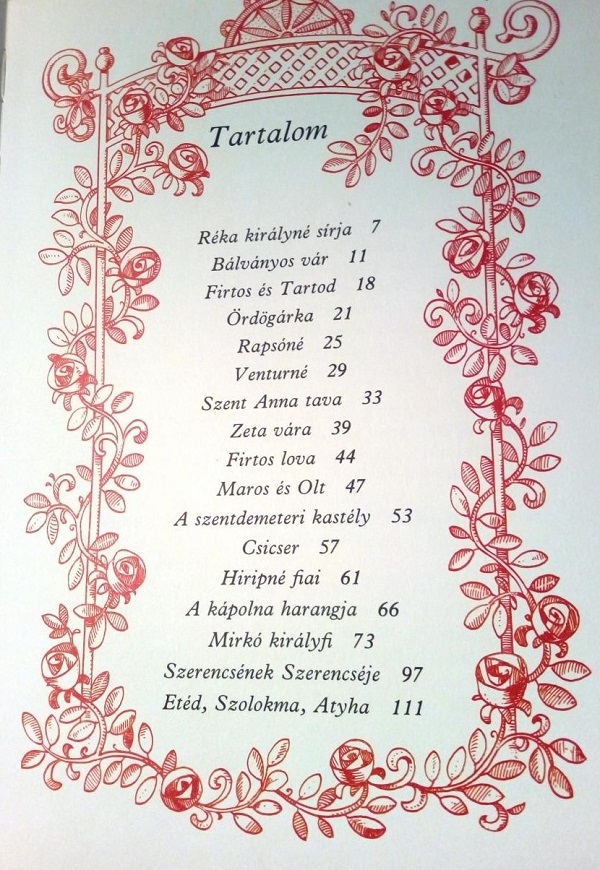 Tartalom
Réka királyné sírja 7
Bálványos vár 11
Firtos és Tartod 18
Ördögárka 21
Rapsóné 25
Venturné 29
Szent Anna tava 33
Zeta vára 39
Firtos lova 44
Maros és Olt 47
A szentdemeteri kastély 53
Csicser 57
Hiripné fiai 61
A kápolna harangja 66
Mirkó királyfi 73
Szerencsének Szerencséje 97
Etéd, Szolokma, Atyha 111